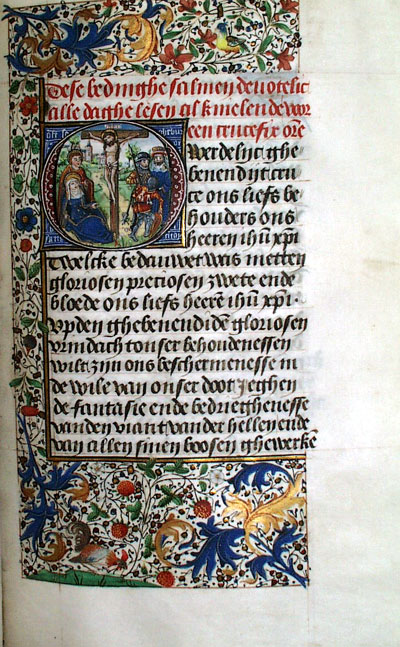 Dese bedinghe salmen devotelic
alle daghe lesen al knielende vor
een crucefix O Ie
werdelijt ghe
benendijt cru
ce ons liefs be
houders ons
heeren ihu xpi
Twelcke bedauwet was metten
gloriosen preciosen zwete ende
bloede ons liefs heere ihu xpi.
Vp den ghebenendiden gloriosen
vrindach tonser behoudenessen
wilt zijn ons beschermenesse in
de wile van onser doot Jeghen
de fantasie ende bedrieghenesse
vanden viant vander hellen ende
van allen sinen boosen ghewerken